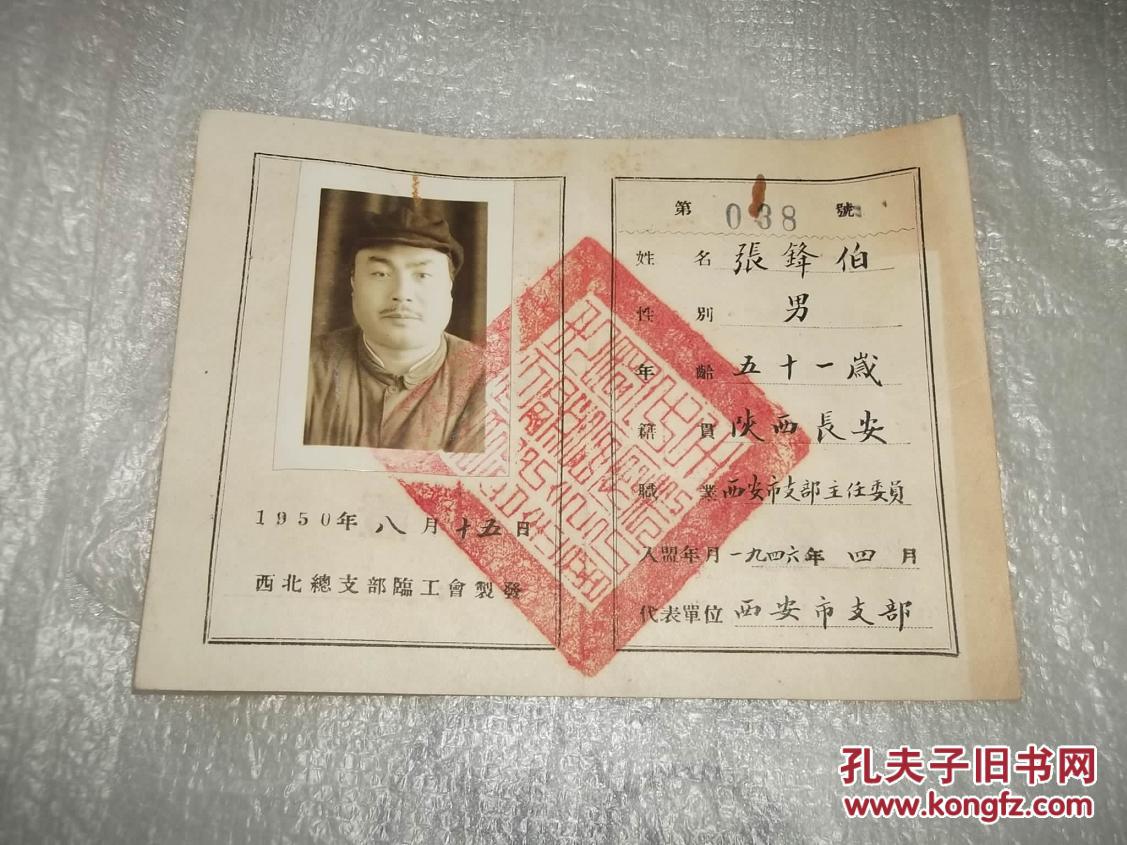 1950年八月十五日
西北總支部臨工會製發
第 038 號
姓名 張鋒伯
性別 男
年齡 五十一歲
籍貫 陝西長安
職業 西安市支部主任委員
入盟年月 一九四六年四月
代表單位 西安市支部
孔夫子旧书网
www.kongfz.com